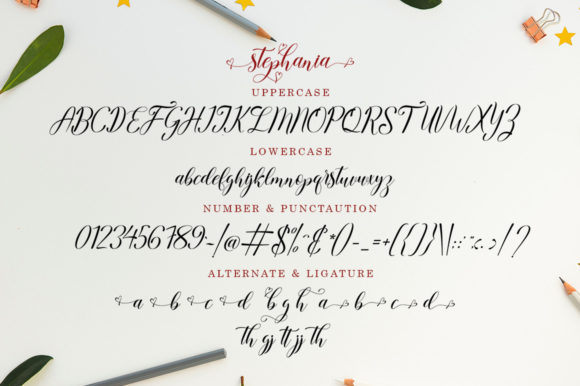 stephania
UPPERCASE
ABCDEFGHIJKLMNOPQRSTUVWXYZ
LOWERCASE
abcdefghijklmnopqrstuvwxyz
NUMBER & PUNCTAUTION
0123456789~/@#$%^&*()-_=+{[}]\|:;"',.<>/?
ALTERNATE & LIGATURE
a b c d b g h a b c d
th gj tt jj th